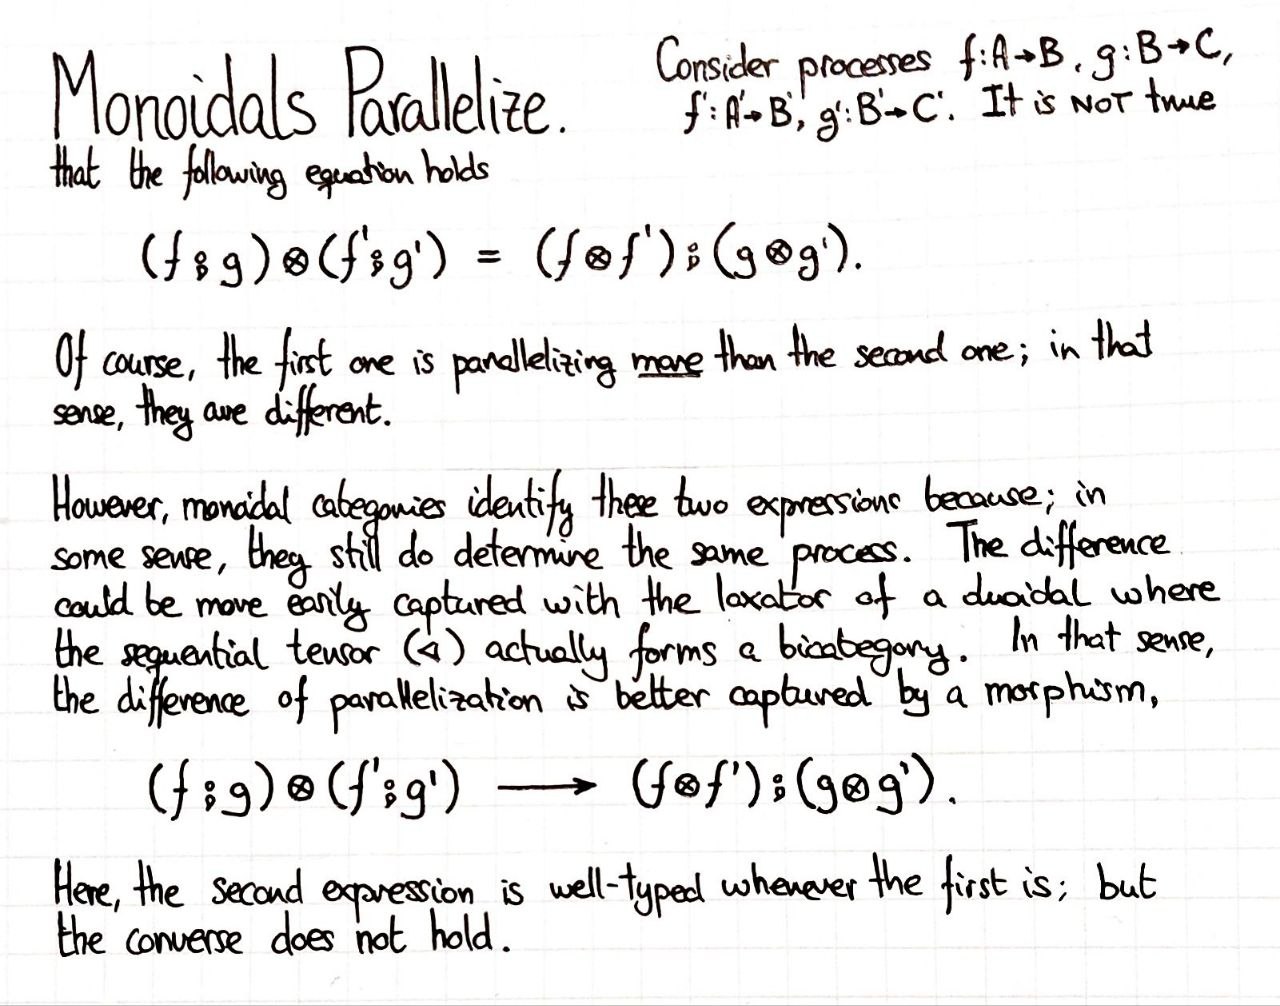 Monoidals Parallelize.
Consider processes f:A→B, g:B→C,
f':A'→B', g':B'→C'. It is NOT true
that the following equation holds
(f⨾g)⊗(f'⨾g') = (f⊗f')⨾(g⊗g').
Of course, the first one is parallelizing more than the second one; in that
sense, they are different.
However, monoidal categories identify these two expressions because; in
some sense, they still do determine the same process. The difference
could be more easily captured with the laxator of a duoidal where
the sequential tensor (◁) actually forms a bicategory. In that sense,
the difference of parallelization is better captured by a morphism,
(f⨾g)⊗(f'⨾g') ⟶ (f⊗f')⨾(g⊗g').
Here, the second expression is well-typed whenever the first is; but
the converse does not hold.